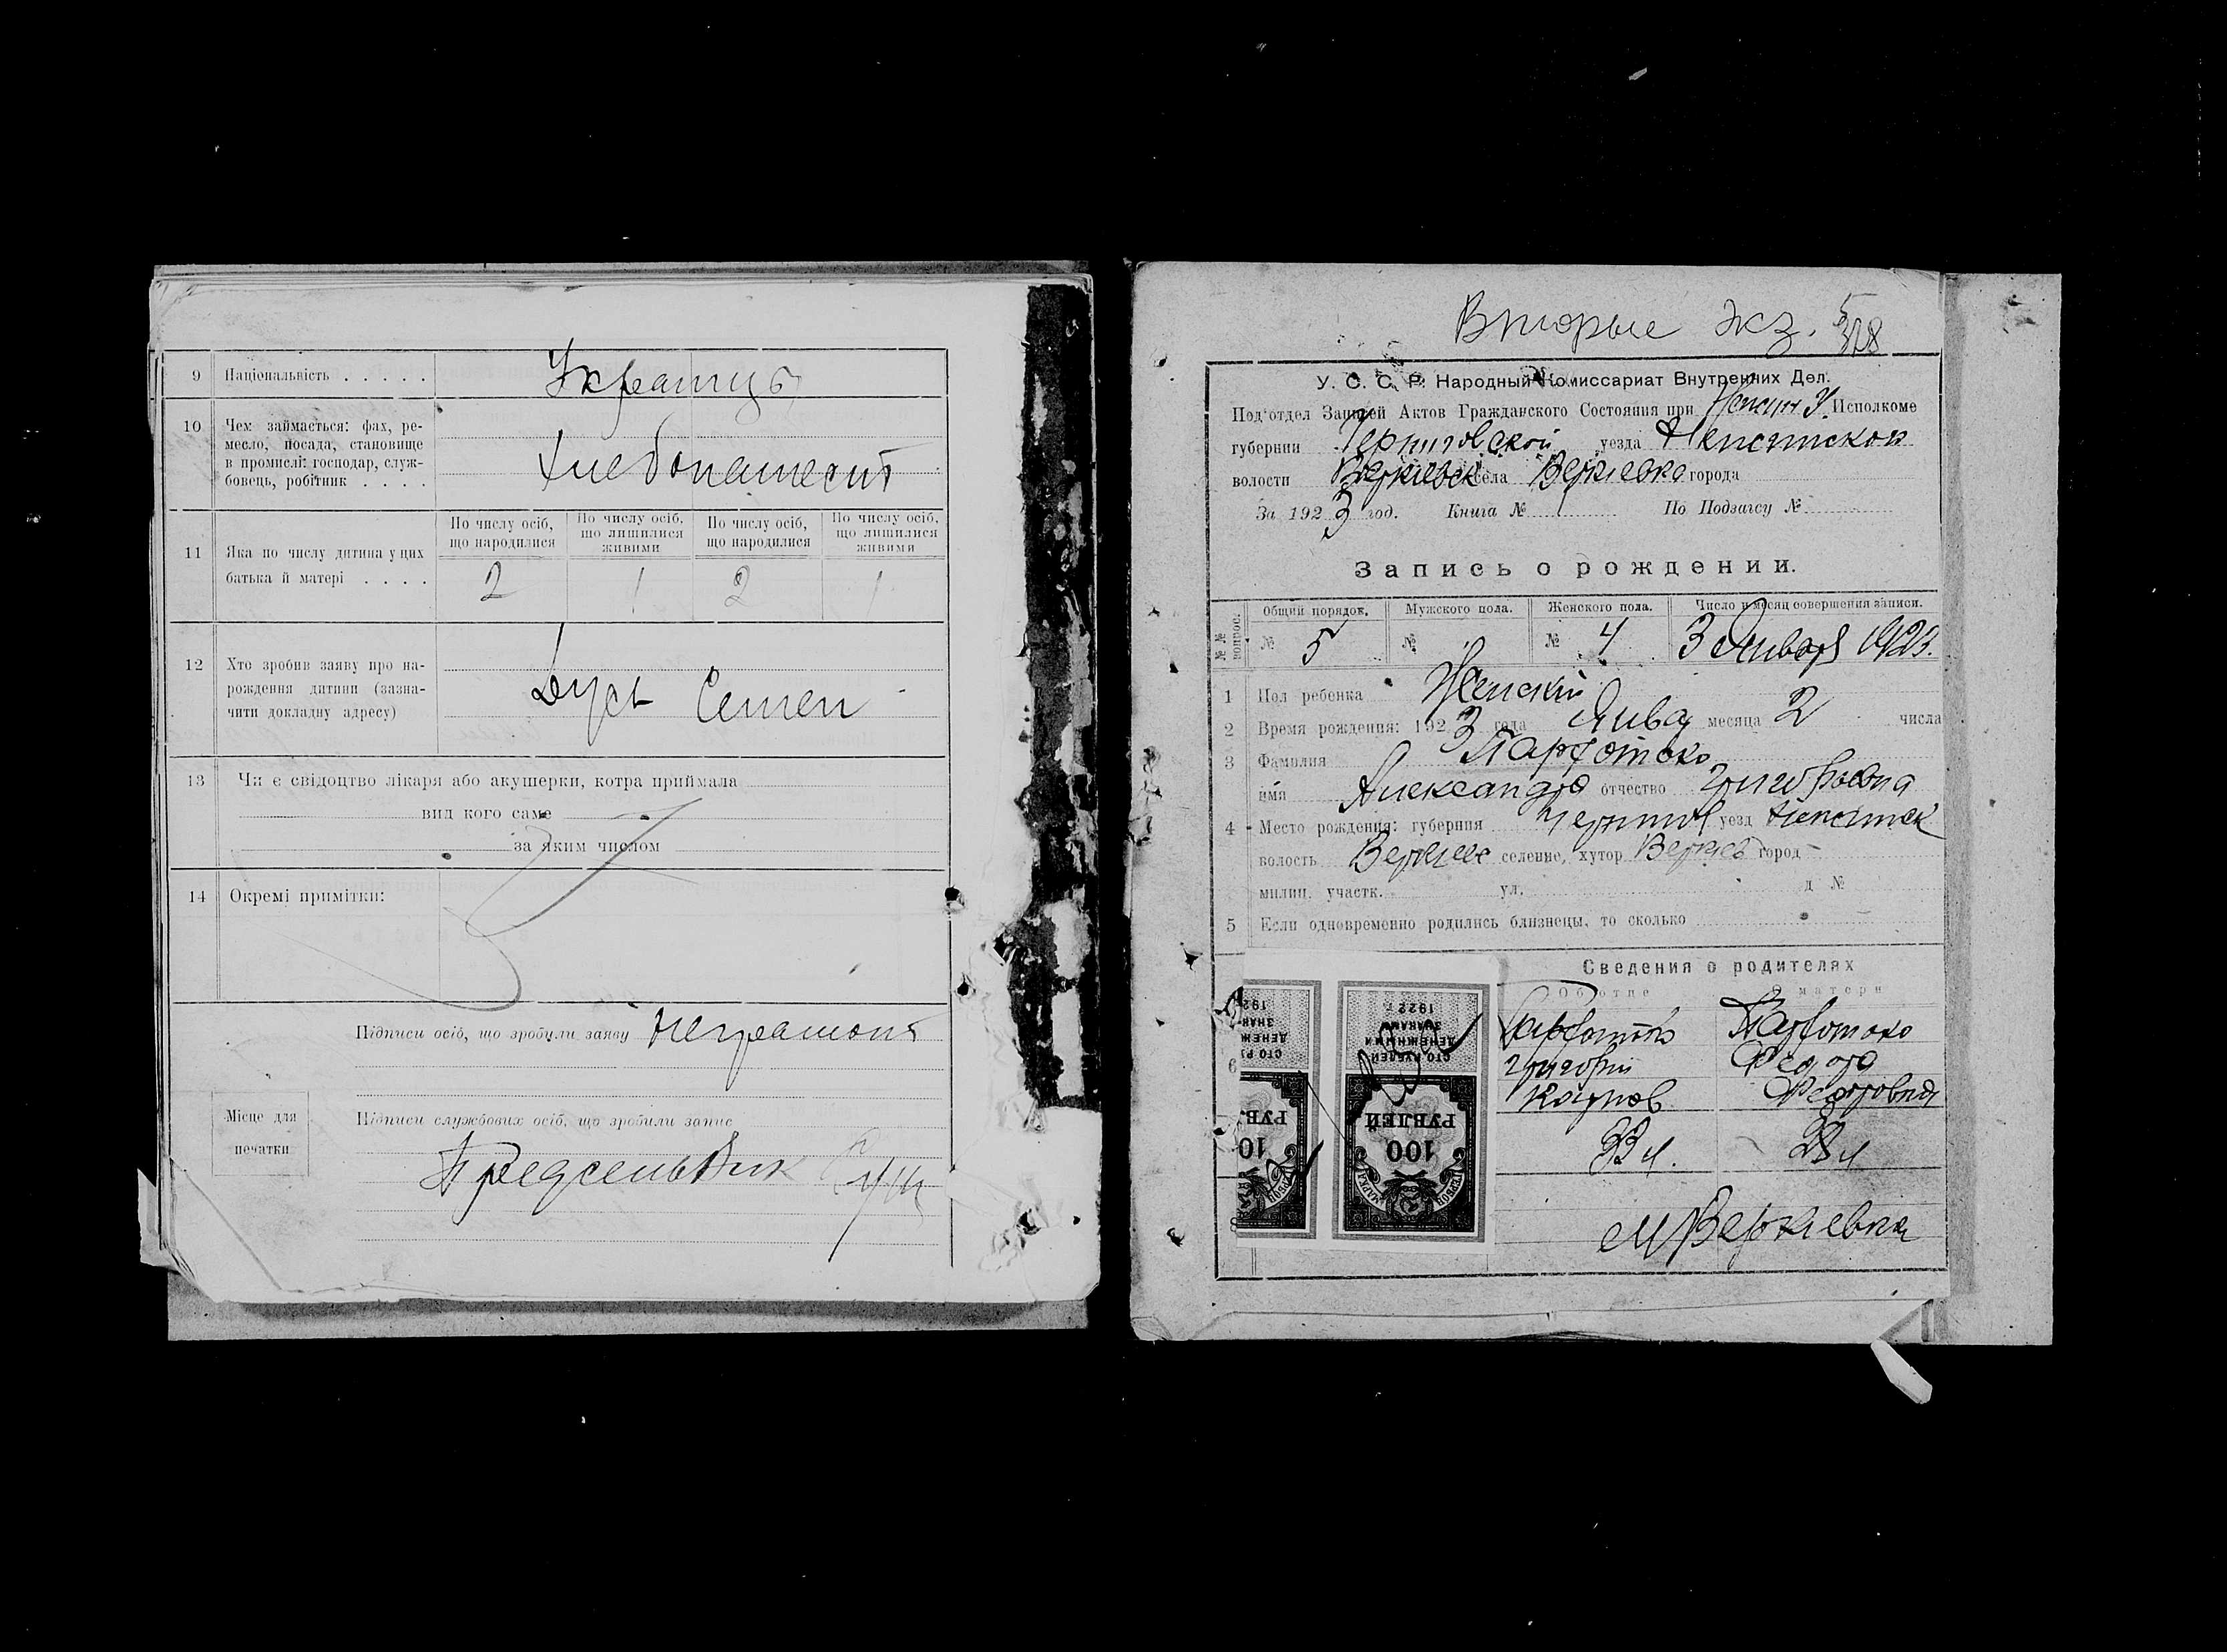 9 Національність . . . . . Украинцы
10 Чем займається: фах, ре-
месло, посада, становище
в промислі: господар, служ-
бовець, робітник . . . .
Хлебопашест
11 Яка по числу дитина у цих
батька й матері . . . .
По числу осіб, що народилися
По числу осіб, що лишилися живими
По числу осіб, що народилися
По числу осіб, що лишилися живими
2 1 2 1
12 Хто зробив заяву про на-
рождення дитини (зазна-
чити докладну адресу)
Дусь Семен
13 Чи є свідоцтво лікаря або акушерки, котра приймала
вид кого саме
за яким числом
14 Окремі примітки:
Підписи осіб, що зробили заяву Неграмот
Місце для
печатки
Підписи службових осіб, що зробили запис
Вторые экз. 5
У. С. С. Р. Народный Комиссариат Внутренних Дел.
Под'отдел Записей Актов Гражданского Состояния при Нежин У. Исполкоме
губернии Черниговской уезда Нежинской
волости Веркиевск села Веркиевка города
За 1923 год. Книга № По Подзагсу №
Запись о рождении.
№№ вопрос.
Общий порядок. Мужского пола. Женского пола. Число и месяц совершения записи.
№ 5 № № 4 3 Января 1923.
1 Пол ребенка Женский
2 Время рождения: 1923 года Янва месяца 2 числа
3 Фамилия
имя Александра отчество Григорьевна
4 Место рождения: губерния Чернигов уезд Нежинск
волость Веркиев селение, хутор Веркиев город
милиц. участк. ул. д №
5 Если одновременно родились близнецы, то сколько
Сведения о родителях
Об отце О матери
Григорий
Карпов Федоровна
33 л. 28 л
6
8
1922 г.
ЗНАКАМИ
ДЕНЕЖНЫМИ
СТО РУБЛЕЙ
РУБЛЕЙ
100
ГЕРБОВ МАРКА
м Веркиевка